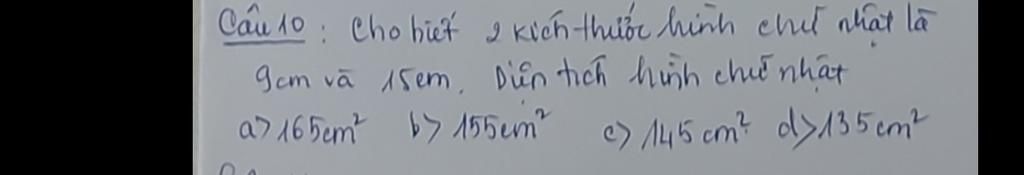 Câu 10 : Cho biết 2 kích thước hình chữ nhật là
9cm và 15cm. Diện tích hình chữ nhật
a> 165cm² b> 155cm² c> 145cm² d> 135cm²